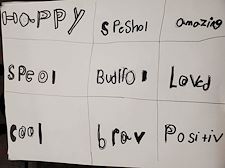 HAPPY
SPeShol
amazing
SPeol
BudifOl
Loved
cool
brav
Positiv